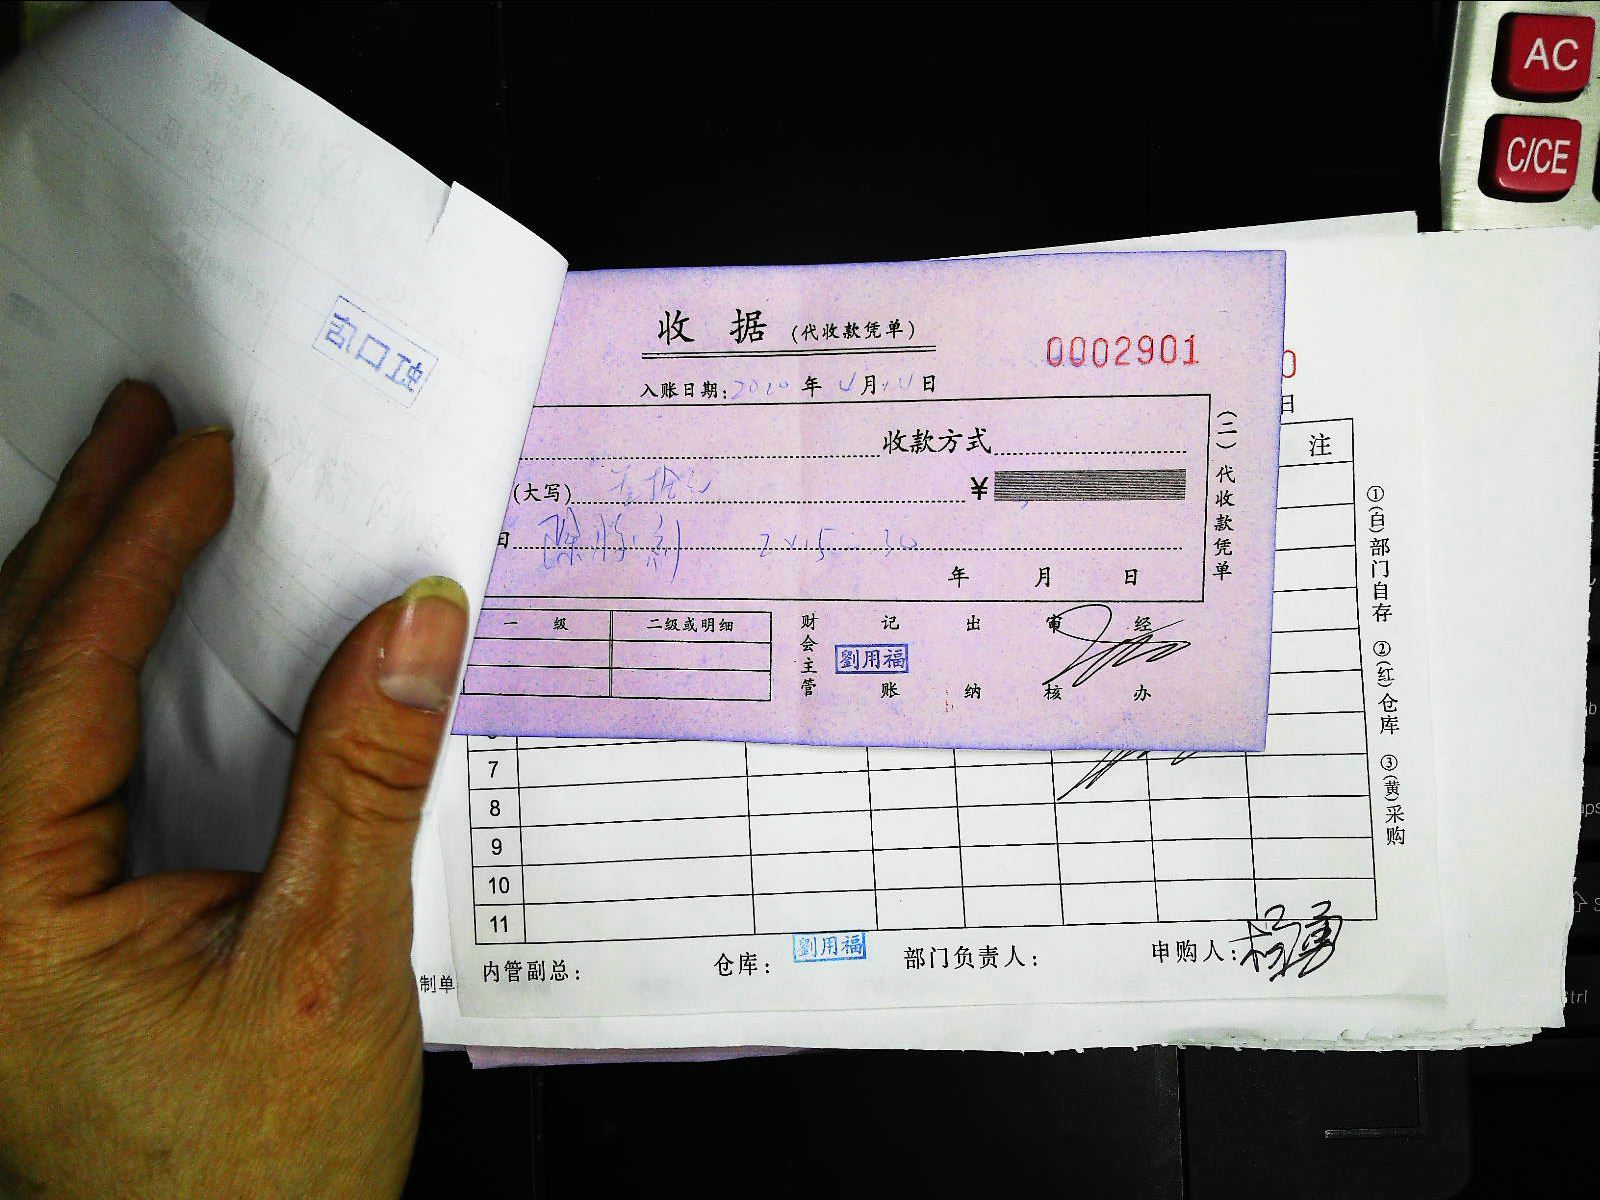 AC
C/CE
虹口店
收 据 (代收款凭单)
0002901
0
入账日期: 2010 年 月 日
日
收款方式
注
(大写) 叁拾元 ¥
日 除胶剂 2×15=30
年 月 日
(二)代收款凭单
一 级 二级或明细
财会主管 记账 出纳 审核 经办
劉用福
7
8
9
10
11
①(白)部门自存 ②(红)仓库 ③(黄)采购
制单
内管副总: 仓库: 劉用福 部门负责人: 申购人: 杨勇